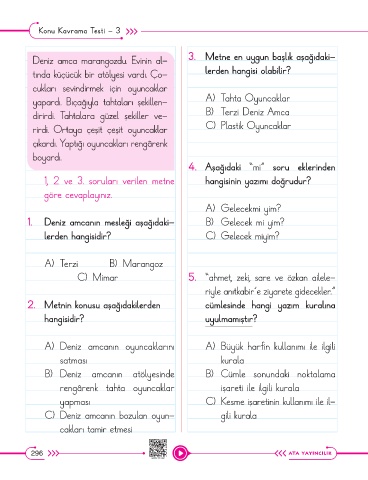 Konu Kavrama Testi - 3
Deniz amca marangozdu. Evinin al-
tında küçücük bir atölyesi vardı. Ço-
cukları sevindirmek için oyuncaklar
yapardı. Bıçağıyla tahtaları şekillen-
dirirdi. Tahtalara güzel şekiller ve-
rirdi. Ortaya çeşit çeşit oyuncaklar
çıkardı. Yaptığı oyuncakları rengârenk
boyardı.
1, 2 ve 3. soruları verilen metne
göre cevaplayınız.
1. Deniz amcanın mesleği aşağıdaki-
lerden hangisidir?
A) Terzi B) Marangoz
C) Mimar
2. Metnin konusu aşağıdakilerden
hangisidir?
A) Deniz amcanın oyuncaklarını
satması
B) Deniz amcanın atölyesinde
rengârenk tahta oyuncaklar
yapması
C) Deniz amcanın bozulan oyun-
cakları tamir etmesi
3. Metne en uygun başlık aşağıdaki-
lerden hangisi olabilir?
A) Tahta Oyuncaklar
B) Terzi Deniz Amca
C) Plastik Oyuncaklar
4. Aşağıdaki "mi" soru eklerinden
hangisinin yazımı doğrudur?
A) Gelecekmi yim?
B) Gelecek mi yim?
C) Gelecek miyim?
5. "ahmet, zeki, sare ve özkan ailele-
riyle anıtkabir'e ziyarete gidecekler."
cümlesinde hangi yazım kuralına
uyulmamıştır?
A) Büyük harfin kullanımı ile ilgili
kurala
B) Cümle sonundaki noktalama
işareti ile ilgili kurala
C) Kesme işaretinin kullanımı ile il-
gili kurala
296
ATA YAYINCILIK